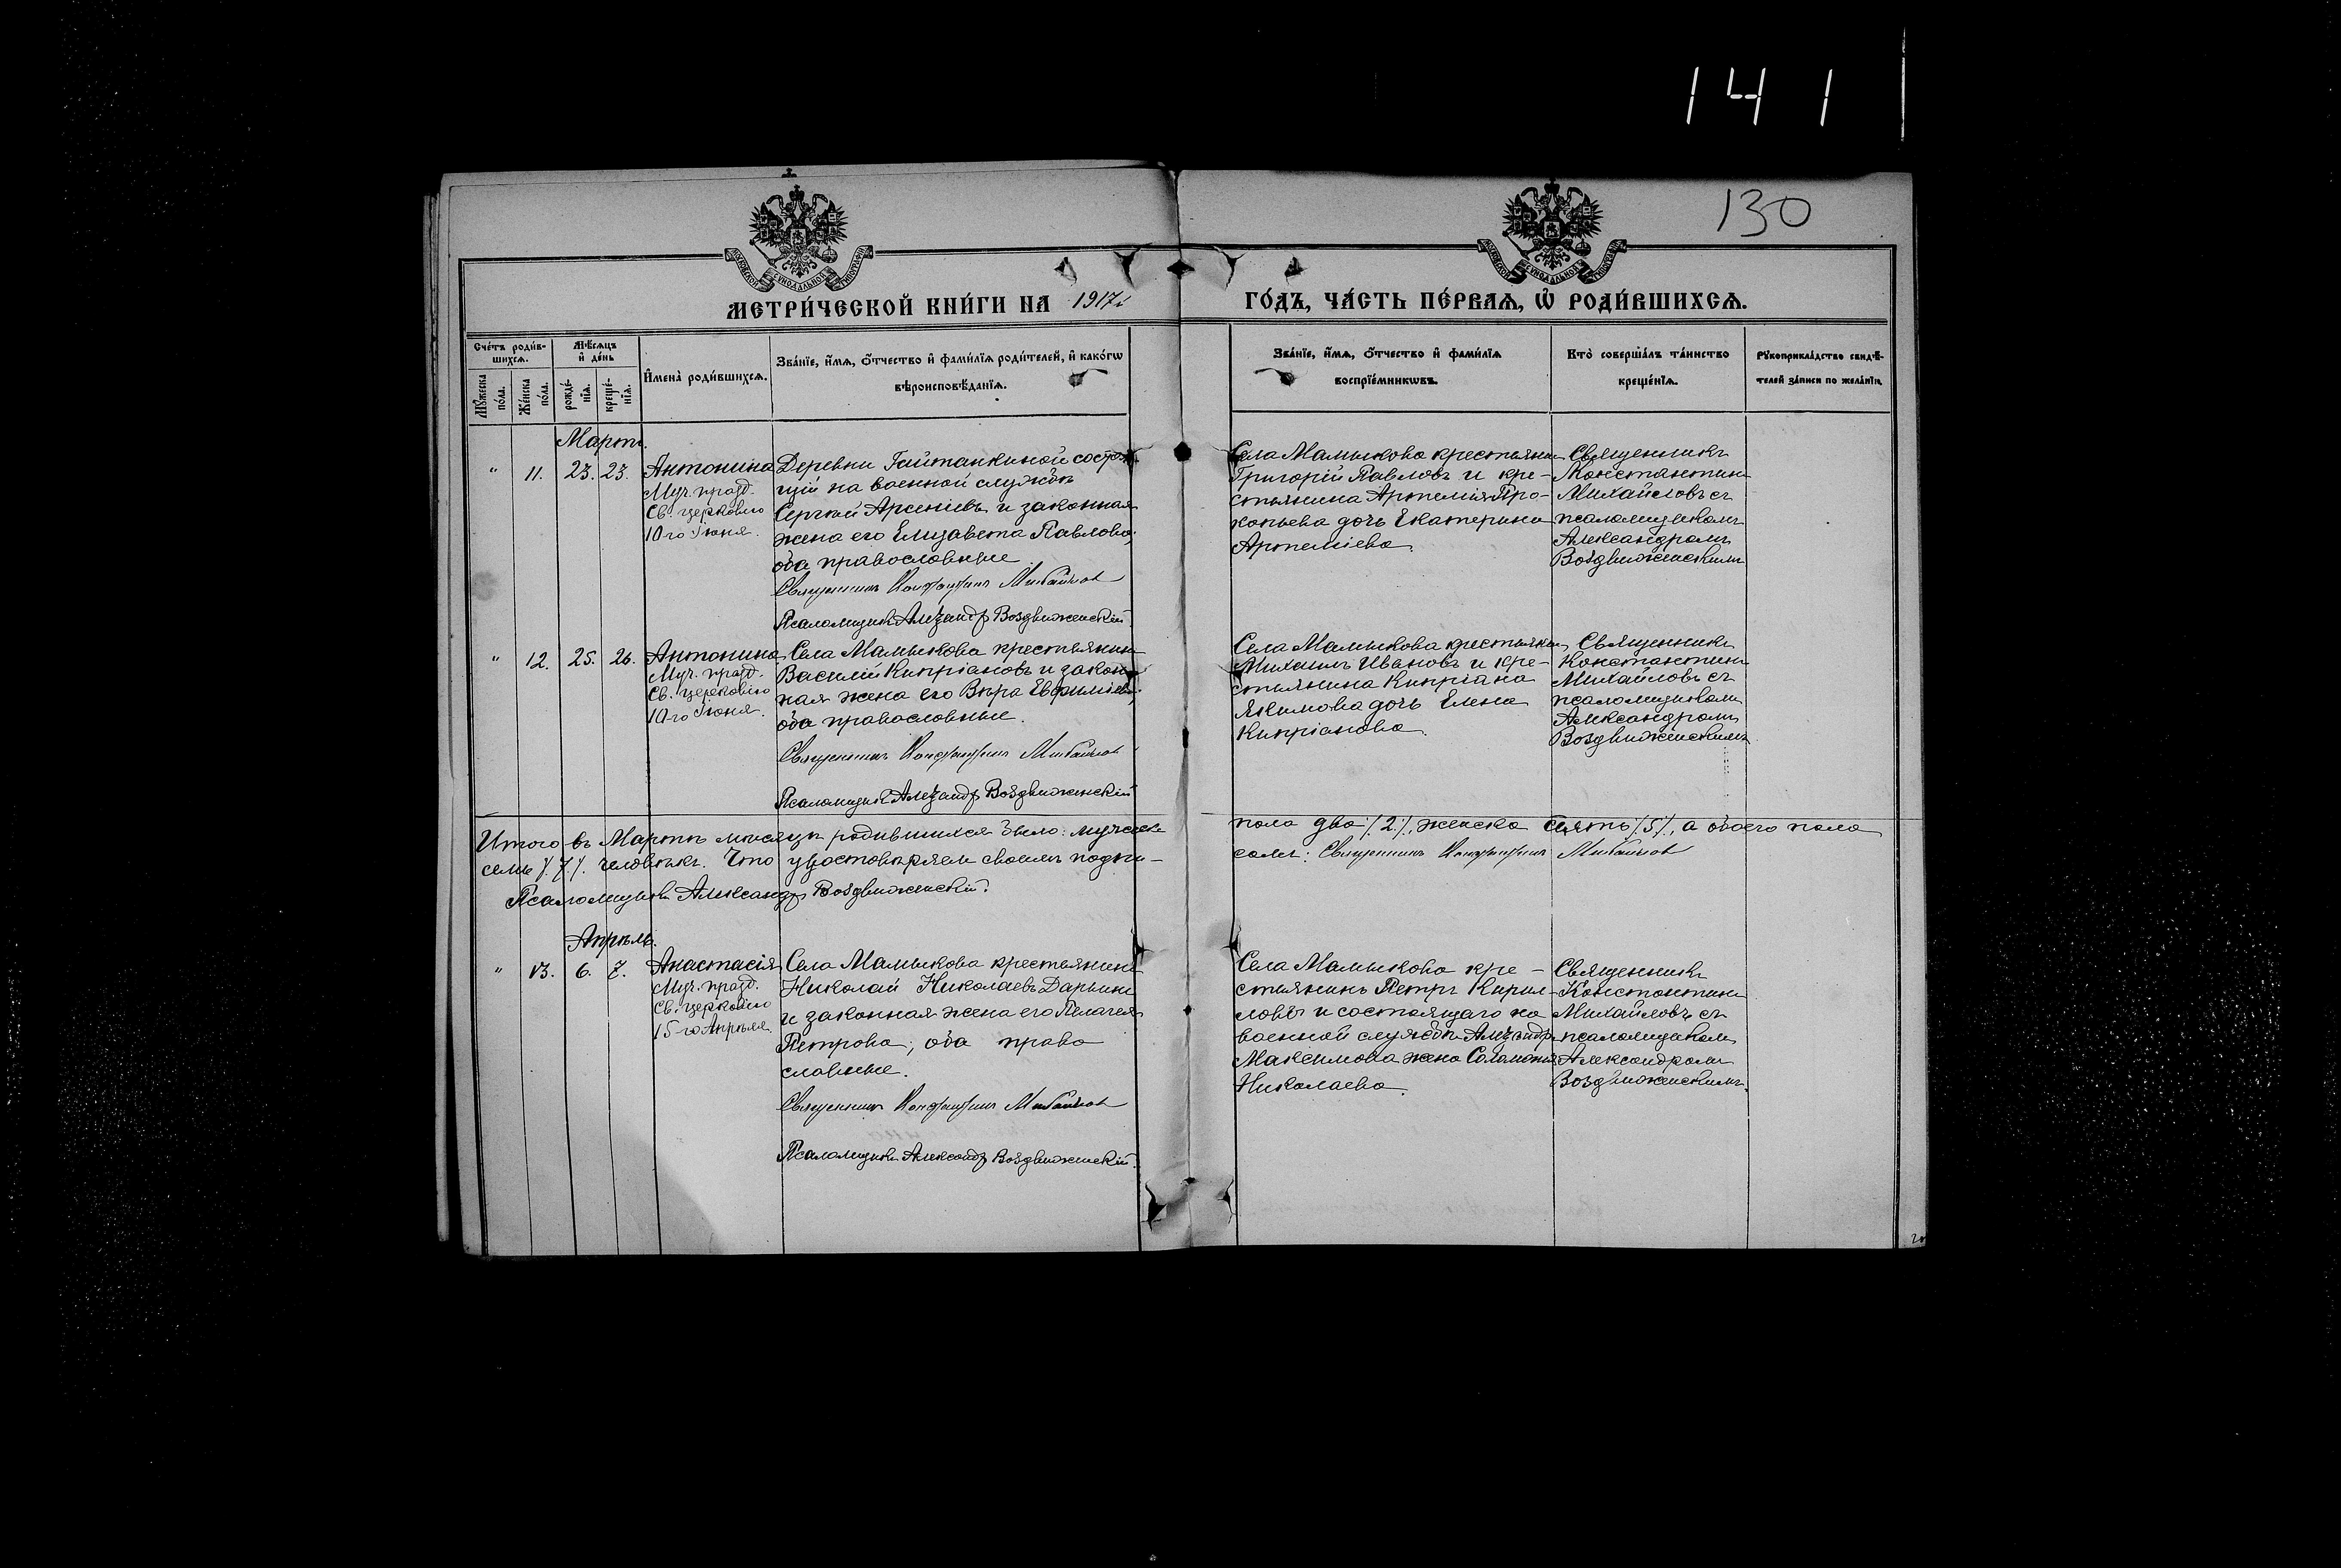 141
130
МЕТРИ́ЧЕСКОЙ КНИ́ГИ НА 1917й
ГО́ДЪ, ЧА́СТЬ ПЕ́РВАѦ, Ѡ҆ РОДИ́ВШИХСѦ.
Сче́тъ роди́в-
шихсѧ.
Мѣ́сѧцъ
и҆ де́нь
Мꙋ́жеска
по́ла.
Же́нска
по́ла.
рожде́-
нїѧ.
креще́-
нїѧ.
И҆мена̀ роди́вшихсѧ.
Зва́нїе, и҆́мѧ, ѻ҆́тчество и҆ фами́лїѧ роди́телей, и҆ како́гѡ
вѣроисповѣ́данїѧ.
Зва́нїе, и҆́мѧ, ѻ҆́тчество и҆ фами́лїѧ
воспрїе́мникѡвъ.
Кто̀ соверша́лъ та́инство
креще́нїѧ.
Рꙋкоприкла́дство свидѣ́-
телей за́писи по жела́нїю.
Мартъ.
" 11. 23. 23.
Антонина
Муч. празд.
Св. церковію
10-го Іюня.
Деревни Гайтанкиной состоя-
щій на военной службѣ
Сергѣй Арсеніевъ и законная
жена его Елизавета Павлова;
оба православные
Священникъ Константинъ Михайлов
Псаломщикъ Александръ Воздвиженскій
Села Мамыкова крестьянинъ
Григорій Павловъ и кре-
стьянина Артемія Про-
копьева дочь Екатерина
Артеміева.
Священникъ
Константинъ
Михайловъ съ
псаломщикомъ
Александромъ
Воздвиженскимъ
" 12. 25. 26.
Антонина
Муч. празд.
Св. церковію
10-го Іюня.
Села Мамыкова крестьянинъ
Василій Кипріановъ и закон-
ная жена его Вѣра Евфиміева;
оба православные.
Священникъ Константинъ Михайлов
Псаломщикъ Александръ Воздвиженскій
Села Мамыкова крестьянинъ
Михаилъ Ивановъ и кре-
стьянина Кипріана
Якимова дочь Елена
Кипріанова.
Священникъ
Константинъ
Михайловъ съ
псаломщикомъ
Александромъ
Воздвиженскимъ
Итого въ Мартѣ мѣсяцѣ родившихся было: мужеска
пола два /2/, женска пять /5/, а обоего пола
семь /7/. человѣкъ. Что удостовѣряем своимъ подпи-
сомъ: Священникъ Константинъ Михайлов
Псаломщикъ Александръ Воздвиженскій.
Апрѣль.
" 13. 6. 7.
Анастасія
Муч. празд.
Св. церковію
15-го Апрѣля.
Села Мамыкова крестьянинъ
Николай Николаевъ Дарьинъ
и законная жена его Пелагея
Петрова; оба право
славные.
Священникъ Константинъ Михайлов
Псаломщикъ Александръ Воздвиженскій.
Села Мамыкова кре-
стьянинъ Петръ Кирил-
ловъ и состоящаго на
военной службѣ Александра
Максимова жена Соломонія
Николаева.
Священникъ
Константинъ
Михайловъ съ
псаломщикомъ
Александромъ
Воздвиженскимъ.